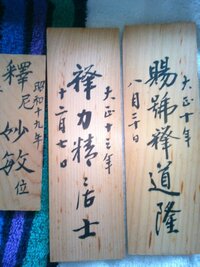 大正十年
賜號釋道隆
八月三十日
大正十三年
釋力精居士
十二月七日
昭和十九年
釋尼妙敏位